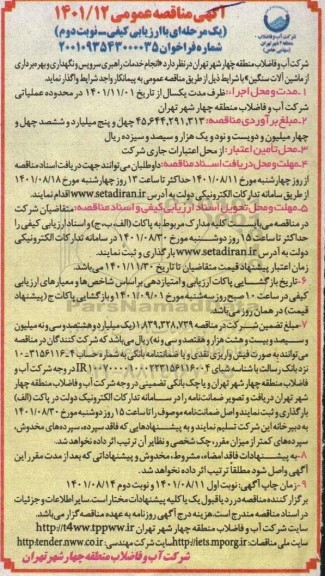 آگهی مناقصه عمومی ۱۴۰۱/۱۲
(یک مرحله ای با ارزیابی کیفی - نوبت دوم)
شماره فراخوان ۲۰۰۱۰۹۳۵۴۳۰۰۰۰۳۵
شرکت آب و فاضلاب
منطقه ۴ شهر تهران
(سهامی خاص)
شرکت آب و فاضلاب منطقه چهار شهر تهران در نظر دارد «انجام خدمات راهبری سرویس و نگهداری و بهره برداری
از ماشین آلات سنگین» با شرایط ذیل از طریق مناقصه عمومی به پیمانکار واجد شرایط واگذار نماید.
۱- مدت و محل اجرا: ظرف مدت یکسال از تاریخ ۱۴۰۱/۱۱/۰۱ در محدوده عملیاتی
شرکت آب و فاضلاب منطقه چهار شهر تهران
۲- مبلغ برآوردی مناقصه: ۴۵,۶۴۴,۲۹۱,۳۱۳ چهل و پنج میلیارد و ششصد و چهل و
چهار میلیون و دویست و نود و یک هزار و سیصد و سیزده ریال
۳- محل تأمین اعتبار: از محل اعتبارات جاری شرکت
۴- مهلت و محل دریافت اسناد مناقصه: داوطلبان می توانند جهت دریافت اسناد مناقصه
از روز چهارشنبه مورخ ۱۴۰۱/۰۸/۱۱ حداکثر تا ساعت ۱۳ روز چهارشنبه مورخ ۱۴۰۱/۰۸/۱۸
از طریق سامانه تدارکات الکترونیکی دولت به آدرس www.setadiran.ir اقدام نمایند.
۵- مهلت و محل تحویل اسناد ارزیابی کیفی و اسناد مناقصه: متقاضیان شرکت
در مناقصه می بایست کلیه مدارک مربوط به پاکات (الف، ب، ج) و اسناد ارزیابی کیفی را
حداکثر تا ساعت ۱۵ روز دوشنبه مورخ ۱۴۰۱/۰۸/۳۰ در سامانه تدارکات الکترونیکی
دولت به آدرس www.setadiran.ir بارگذاری و ثبت نمایند.
زمان اعتبار پیشنهاد قیمت متقاضیان تا تاریخ ۱۴۰۱/۱۱/۳۰ می باشد.
۶- تاریخ بازگشایی پاکات ارزیابی و امتیازدهی براساس شاخص ها و معیارهای ارزیابی
کیفی در ساعت ۱۰ صبح روز سه شنبه مورخ ۱۴۰۱/۰۹/۰۱ و بازگشایی پاکات ج (پیشنهاد
قیمت) در همان روز می باشد.
۷- مبلغ تضمین شرکت در مناقصه ۱,۸۳۹,۳۲۸,۷۳۹ (یک میلیارد و هشتصد و سی و نه میلیون
و سیصد و بیست و هشت هزار و هفتصد و سی و نه) ریال می باشد که شرکت کنندگان در مناقصه
می توانند به صورت فیش واریزی نقدی و یا ضمانتنامه بانکی به شماره حساب
نزد بانک رسالت با شناسه شبای در وجه شرکت آب و
فاضلاب منطقه چهار شهر تهران و یا چک بانکی تضمینی در وجه شرکت آب و فاضلاب منطقه چهار
شهر تهران دریافت و تصویر ضمانت نامه را در سامانه تدارکات الکترونیک دولت در پاکت (الف)
بارگذاری و ثبت نمایند و اصل ضمانت نامه موصوف را تا ساعت ۱۵ روز دوشنبه مورخ ۱۴۰۱/۰۸/۳۰
به دبیرخانه این شرکت تسلیم نمایند و به پیشنهادهایی که فاقد سپرده، سپرده های مخدوش،
سپرده های کمتر از میزان مقرر، چک شخصی و نظایر آن ترتیب اثر داده نخواهد شد.
۸- به پیشنهادات فاقد امضاء، مشروط، مخدوش و پیشنهاداتی که بعد از مدت مقرر این
آگهی واصل شود مطلقاً ترتیب اثر داده نخواهد شد.
۹- زمان چاپ آگهی: نوبت اول ۱۴۰۱/۰۸/۱۱ و نوبت دوم ۱۴۰۱/۰۸/۱۴
برگزار کننده مناقصه در رد یا قبول یک یا کلیه پیشنهادات مختار است. سایر اطلاعات و جزئیات
در اسناد مناقصه مندرج است. هزینه درج آگهی روزنامه به عهده مناقصه گزار می باشد.
سایت شرکت آب و فاضلاب منطقه چهار شهر تهران http://t4ww.tpww.ir
سایت ملی مناقصات: http://iets.mporg.ir سایت شرکت مهندسی: http:tender.nww.co.ir
شرکت آب و فاضلاب منطقه چهار شهر تهران